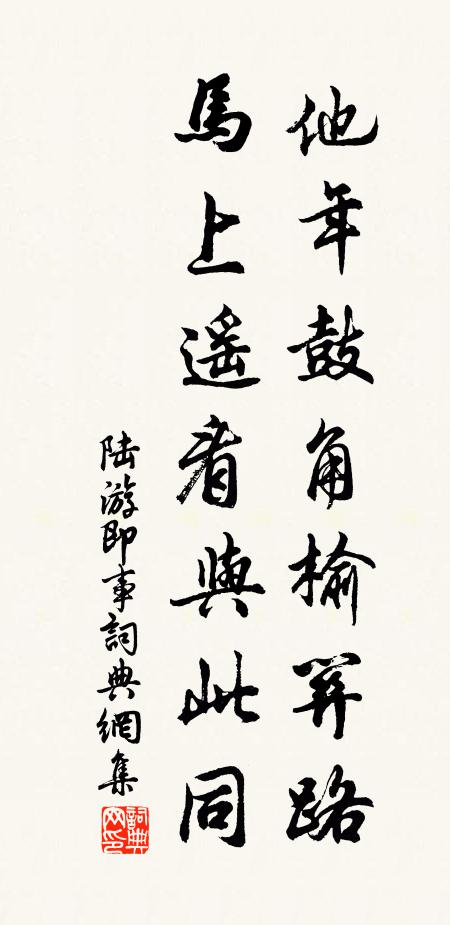 他年鼓角榆關路
馬上遥看與此同
陆游即事詞典網集
詞典网印